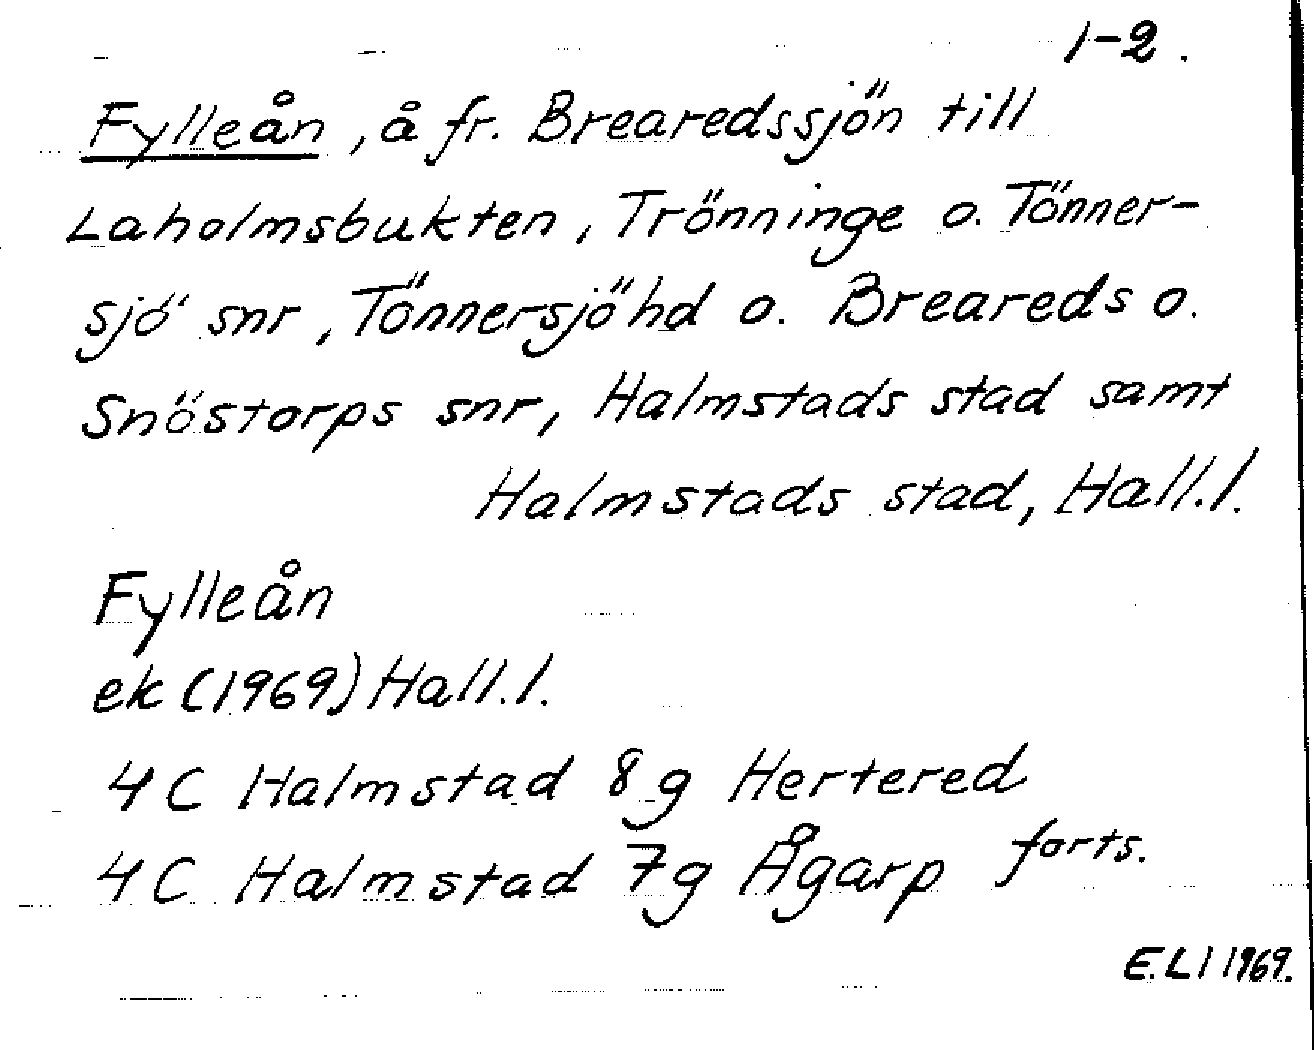 1-2.
Fylleån, å fr. Brearedssjön till
Laholmsbukten, Trönninge o. Tönner-
sjö snr, Tönnersjö hd o. Breareds o.
Snöstorps snr, Halmstads stad samt
Halmstads stad, Hall.l.
Fylleån
ek (1969) Hall.l.
4C Halmstad 8g Hertered
4C Halmstad 7g Ågarp forts.
E.LI 1969.